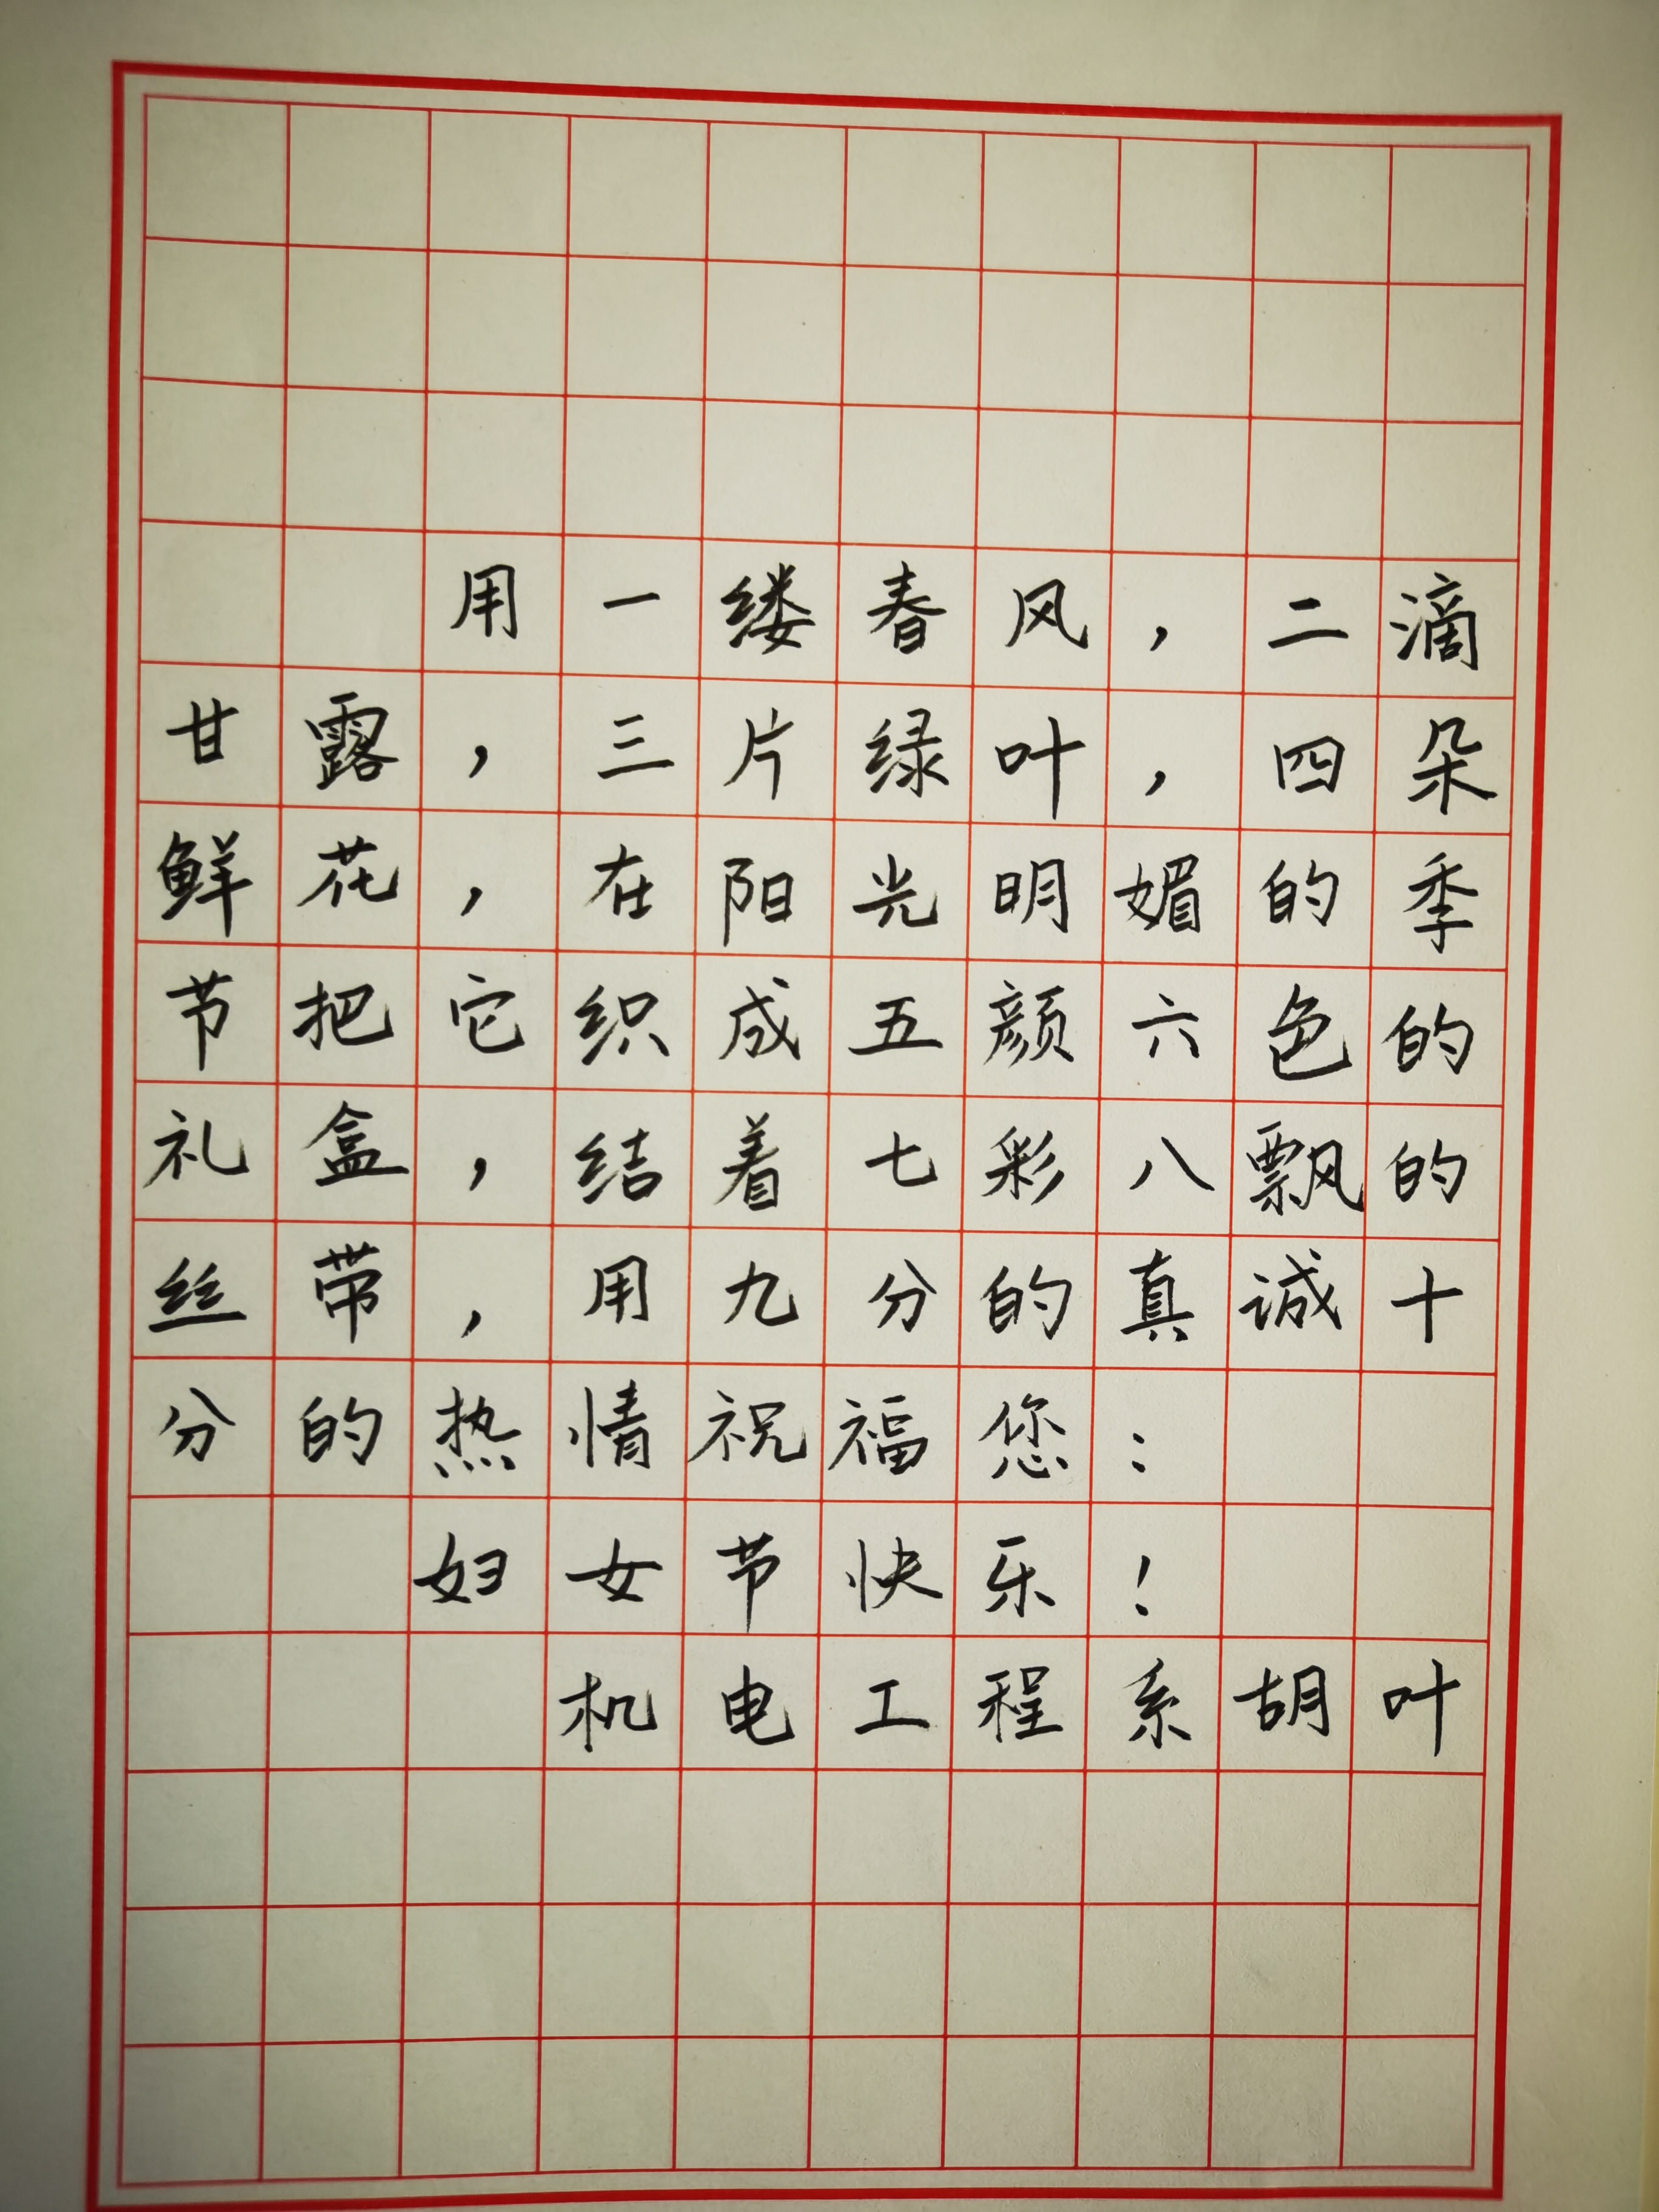 用一缕春风，二滴
甘露，三片绿叶，四朵
鲜花，在阳光明媚的季
节把它织成五颜六色的
礼盒，结着七彩八飘的
丝带，用九分的真诚十
分的热情祝福您：
妇女节快乐！
机电工程系胡叶